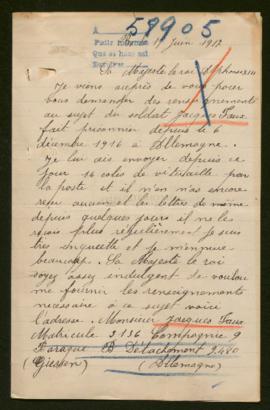 59905
A
juin 1917
Sa Majesté le roi Alphonse XIII
Je viens auprès de vous pour
vous demander des renseignements
au sujet du soldat Jacques Faux
fait prisonnier depuis le 6
décembre 1916 à Allemagne.
Je lui ais envoyer depuis ce
jour 16 colis de victuaille par
la poste et il m'en n'as encore
refer aucun et les lettres de même
depuis quelques jours il ne les
reçois plus régulièrement je suis
très inquiette et je m'ennuie
beaucoup. Sa Majesté le roi
soyez assez indulgent de vouloir
me fournir les renseignements
nécessaire à ce sujet voici
l'adresse. Monsieur Jacques Faux
Matricule 3136 Compagnie 9
Baraque B Détachement 2480
(Giessen) (Allemagne)